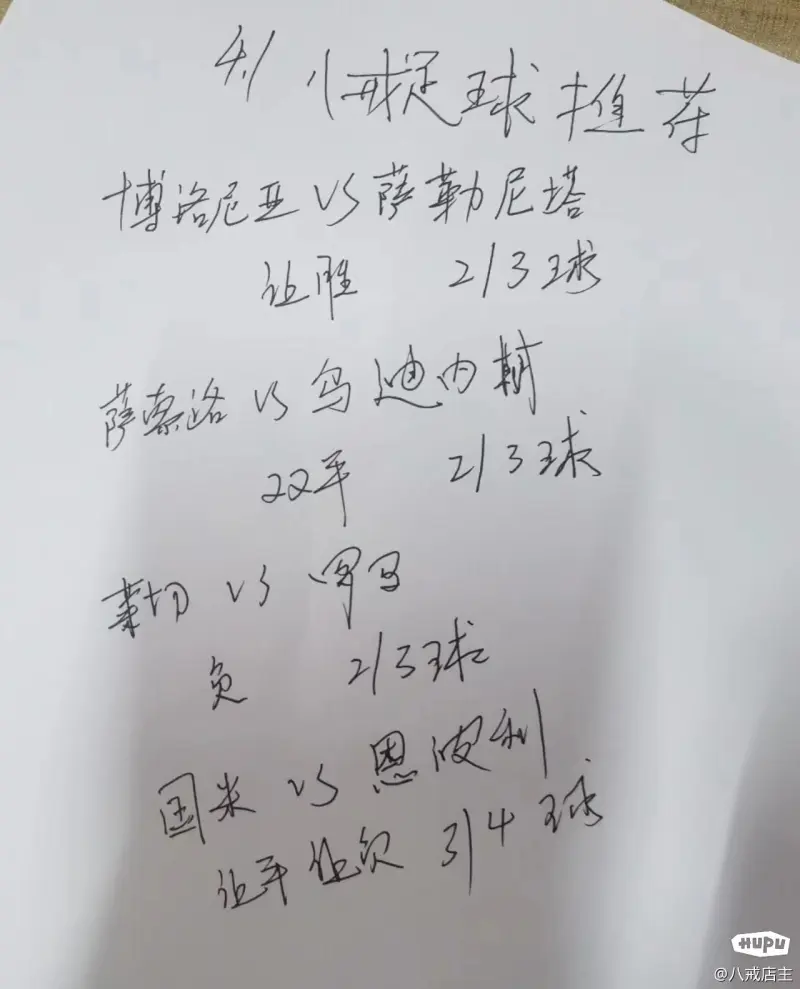 4/1 八戒足球推荐
博洛尼亚 VS 萨勒尼塔
让胜 2/3球
萨索洛 VS 乌迪内斯
双平 2/3球
莱切 VS 罗马
负 2/3球
国米 VS 恩波利
让平 让负 3/4球
HUPU
@八戒店主